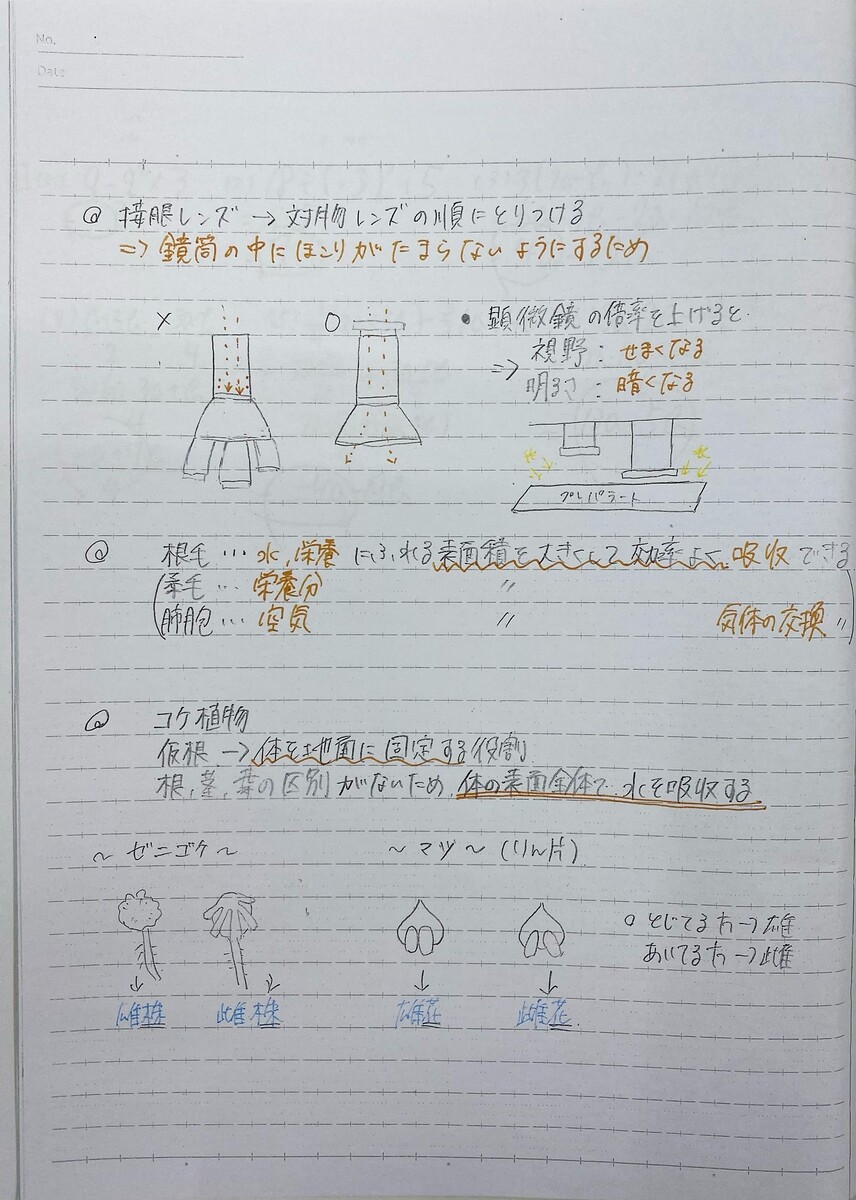 No.
Date
接眼レンズ → 対物レンズの順にとりつける
⇒ 鏡筒の中にほこりがたまらないようにするため
×
○
• 顕微鏡の倍率を上げると
⇒ 視野：せまくなる
明るさ：暗くなる
プレパラート
根毛…水,栄養にふれる表面積を大きくして効率よく吸収できる
(柔毛…栄養分 〃
肺胞…空気 〃 気体の交換〃)
コケ植物
仮根 → 体を地面に固定する役割
根,茎,葉の区別がないため,体の表面全体で水を吸収する
～ゼニゴケ～
～マツ～(りん片)
○とじてる方→雄
あいてる方→雌
雄株
雌株
雄花
雌花